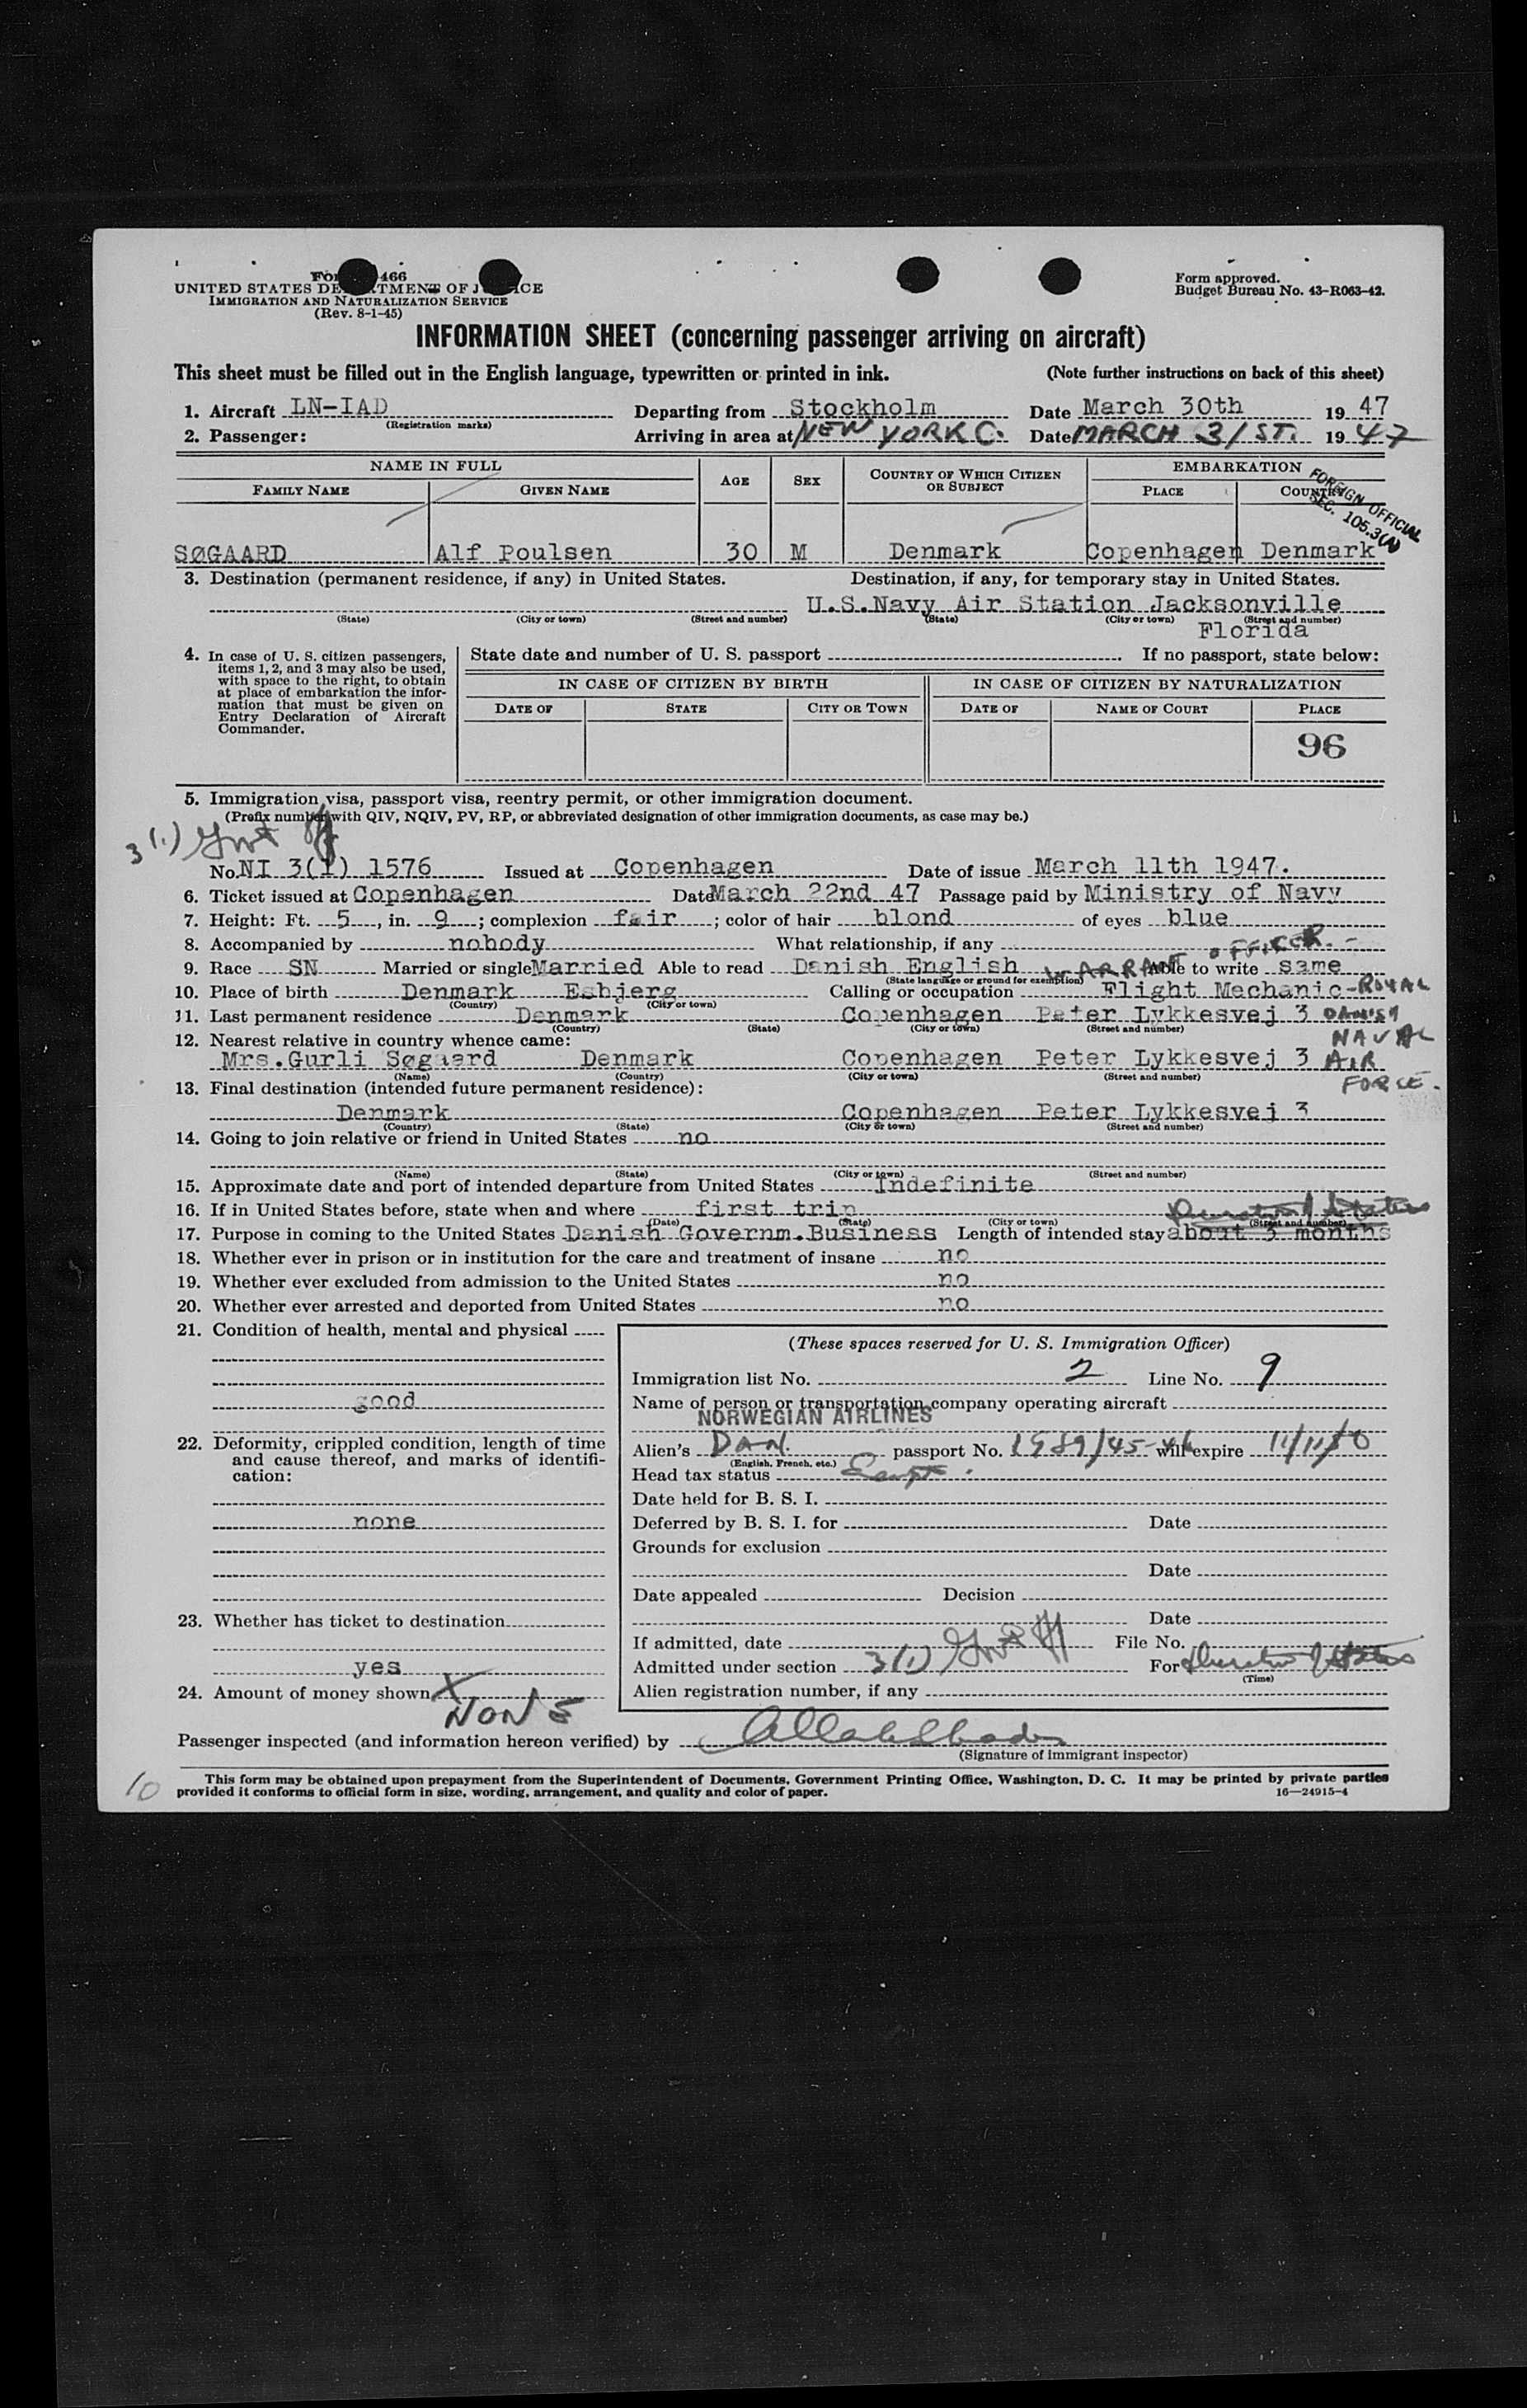 Form 466
UNITED STATES DEPARTMENT OF JUSTICE
IMMIGRATION AND NATURALIZATION SERVICE
(Rev. 8-1-45)
Form approved.
Budget Bureau No. 43-R063-42.
INFORMATION SHEET (concerning passenger arriving on aircraft)
This sheet must be filled out in the English language, typewritten or printed in ink. (Note further instructions on back of this sheet)
1. Aircraft LN-IAD Departing from Stockholm Date March 30th 19 47
(Registration marks)
2. Passenger: Arriving in area at NEW YORK C. Date MARCH 31ST. 19 47
NAME IN FULL AGE SEX COUNTRY OF WHICH CITIZEN OR SUBJECT EMBARKATION
FAMILY NAME GIVEN NAME PLACE COUNTRY
FOREIGN OFFICIAL
SEC. 105.3(A)
SØGAARD Alf Poulsen 30 M Denmark Copenhagen Denmark
3. Destination (permanent residence, if any) in United States. Destination, if any, for temporary stay in United States.
U.S.Navy Air Station Jacksonville
(State) (City or town) (Street and number) (State) (City or town) (Street and number)
Florida
4. In case of U. S. citizen passengers, items 1, 2, and 3 may also be used, with space to the right, to obtain at place of embarkation the information that must be given on Entry Declaration of Aircraft Commander.
State date and number of U. S. passport If no passport, state below:
IN CASE OF CITIZEN BY BIRTH IN CASE OF CITIZEN BY NATURALIZATION
DATE OF STATE CITY OR TOWN DATE OF NAME OF COURT PLACE
96
5. Immigration visa, passport visa, reentry permit, or other immigration document.
(Prefix number with QIV, NQIV, PV, RP, or abbreviated designation of other immigration documents, as case may be.)
3(1) Govt Off
No. NI 3(1) 1576 Issued at Copenhagen Date of issue March 11th 1947.
6. Ticket issued at Copenhagen Date March 22nd 47 Passage paid by Ministry of Navy
7. Height: Ft. 5, in. 9; complexion fair; color of hair blond of eyes blue
8. Accompanied by nobody What relationship, if any
WARRANT OFFICER.-
9. Race SN Married or single Married Able to read Danish English Able to write same
(State language or ground for exemption)
10. Place of birth Denmark Esbjerg Calling or occupation Flight Mechanic-ROYAL
(Country) (City or town)
11. Last permanent residence Denmark Copenhagen Peter Lykkesvej 3 DANISH
(Country) (State) (City or town) (Street and number)
12. Nearest relative in country whence came: NAVAL
Mrs.Gurli Søgaard Denmark Copenhagen Peter Lykkesvej 3 AIR
(Name) (Country) (City or town) (Street and number)
13. Final destination (intended future permanent residence): FORCE.
Denmark Copenhagen Peter Lykkesvej 3
(Country) (State) (City or town) (Street and number)
14. Going to join relative or friend in United States no
(Name) (State) (City or town) (Street and number)
15. Approximate date and port of intended departure from United States Indefinite
16. If in United States before, state when and where first trip Duration of Status
(Date) (State) (City or town) (Street and number)
17. Purpose in coming to the United States Danish Governm.Business Length of intended stay about 3 months
18. Whether ever in prison or in institution for the care and treatment of insane no
19. Whether ever excluded from admission to the United States no
20. Whether ever arrested and deported from United States no
21. Condition of health, mental and physical
good
22. Deformity, crippled condition, length of time and cause thereof, and marks of identification:
none
23. Whether has ticket to destination
yes
24. Amount of money shown X
NONE
(These spaces reserved for U. S. Immigration Officer)
Immigration list No. 2 Line No. 9
Name of person or transportation company operating aircraft
NORWEGIAN AIRLINES
Alien's DAN. passport No. 1989/45-46 will expire 11/11/50
(English, French, etc.)
Head tax status Exempt.
Date held for B. S. I.
Deferred by B. S. I. for Date
Grounds for exclusion
Date
Date appealed Decision
Date
If admitted, date File No.
Admitted under section 3(1) Govt Off For Duration of Status
(Time)
Alien registration number, if any
Passenger inspected (and information hereon verified) by
(Signature of immigrant inspector)
10
This form may be obtained upon prepayment from the Superintendent of Documents, Government Printing Office, Washington, D. C. It may be printed by private parties
provided it conforms to official form in size, wording, arrangement, and quality and color of paper. 16—24915-4